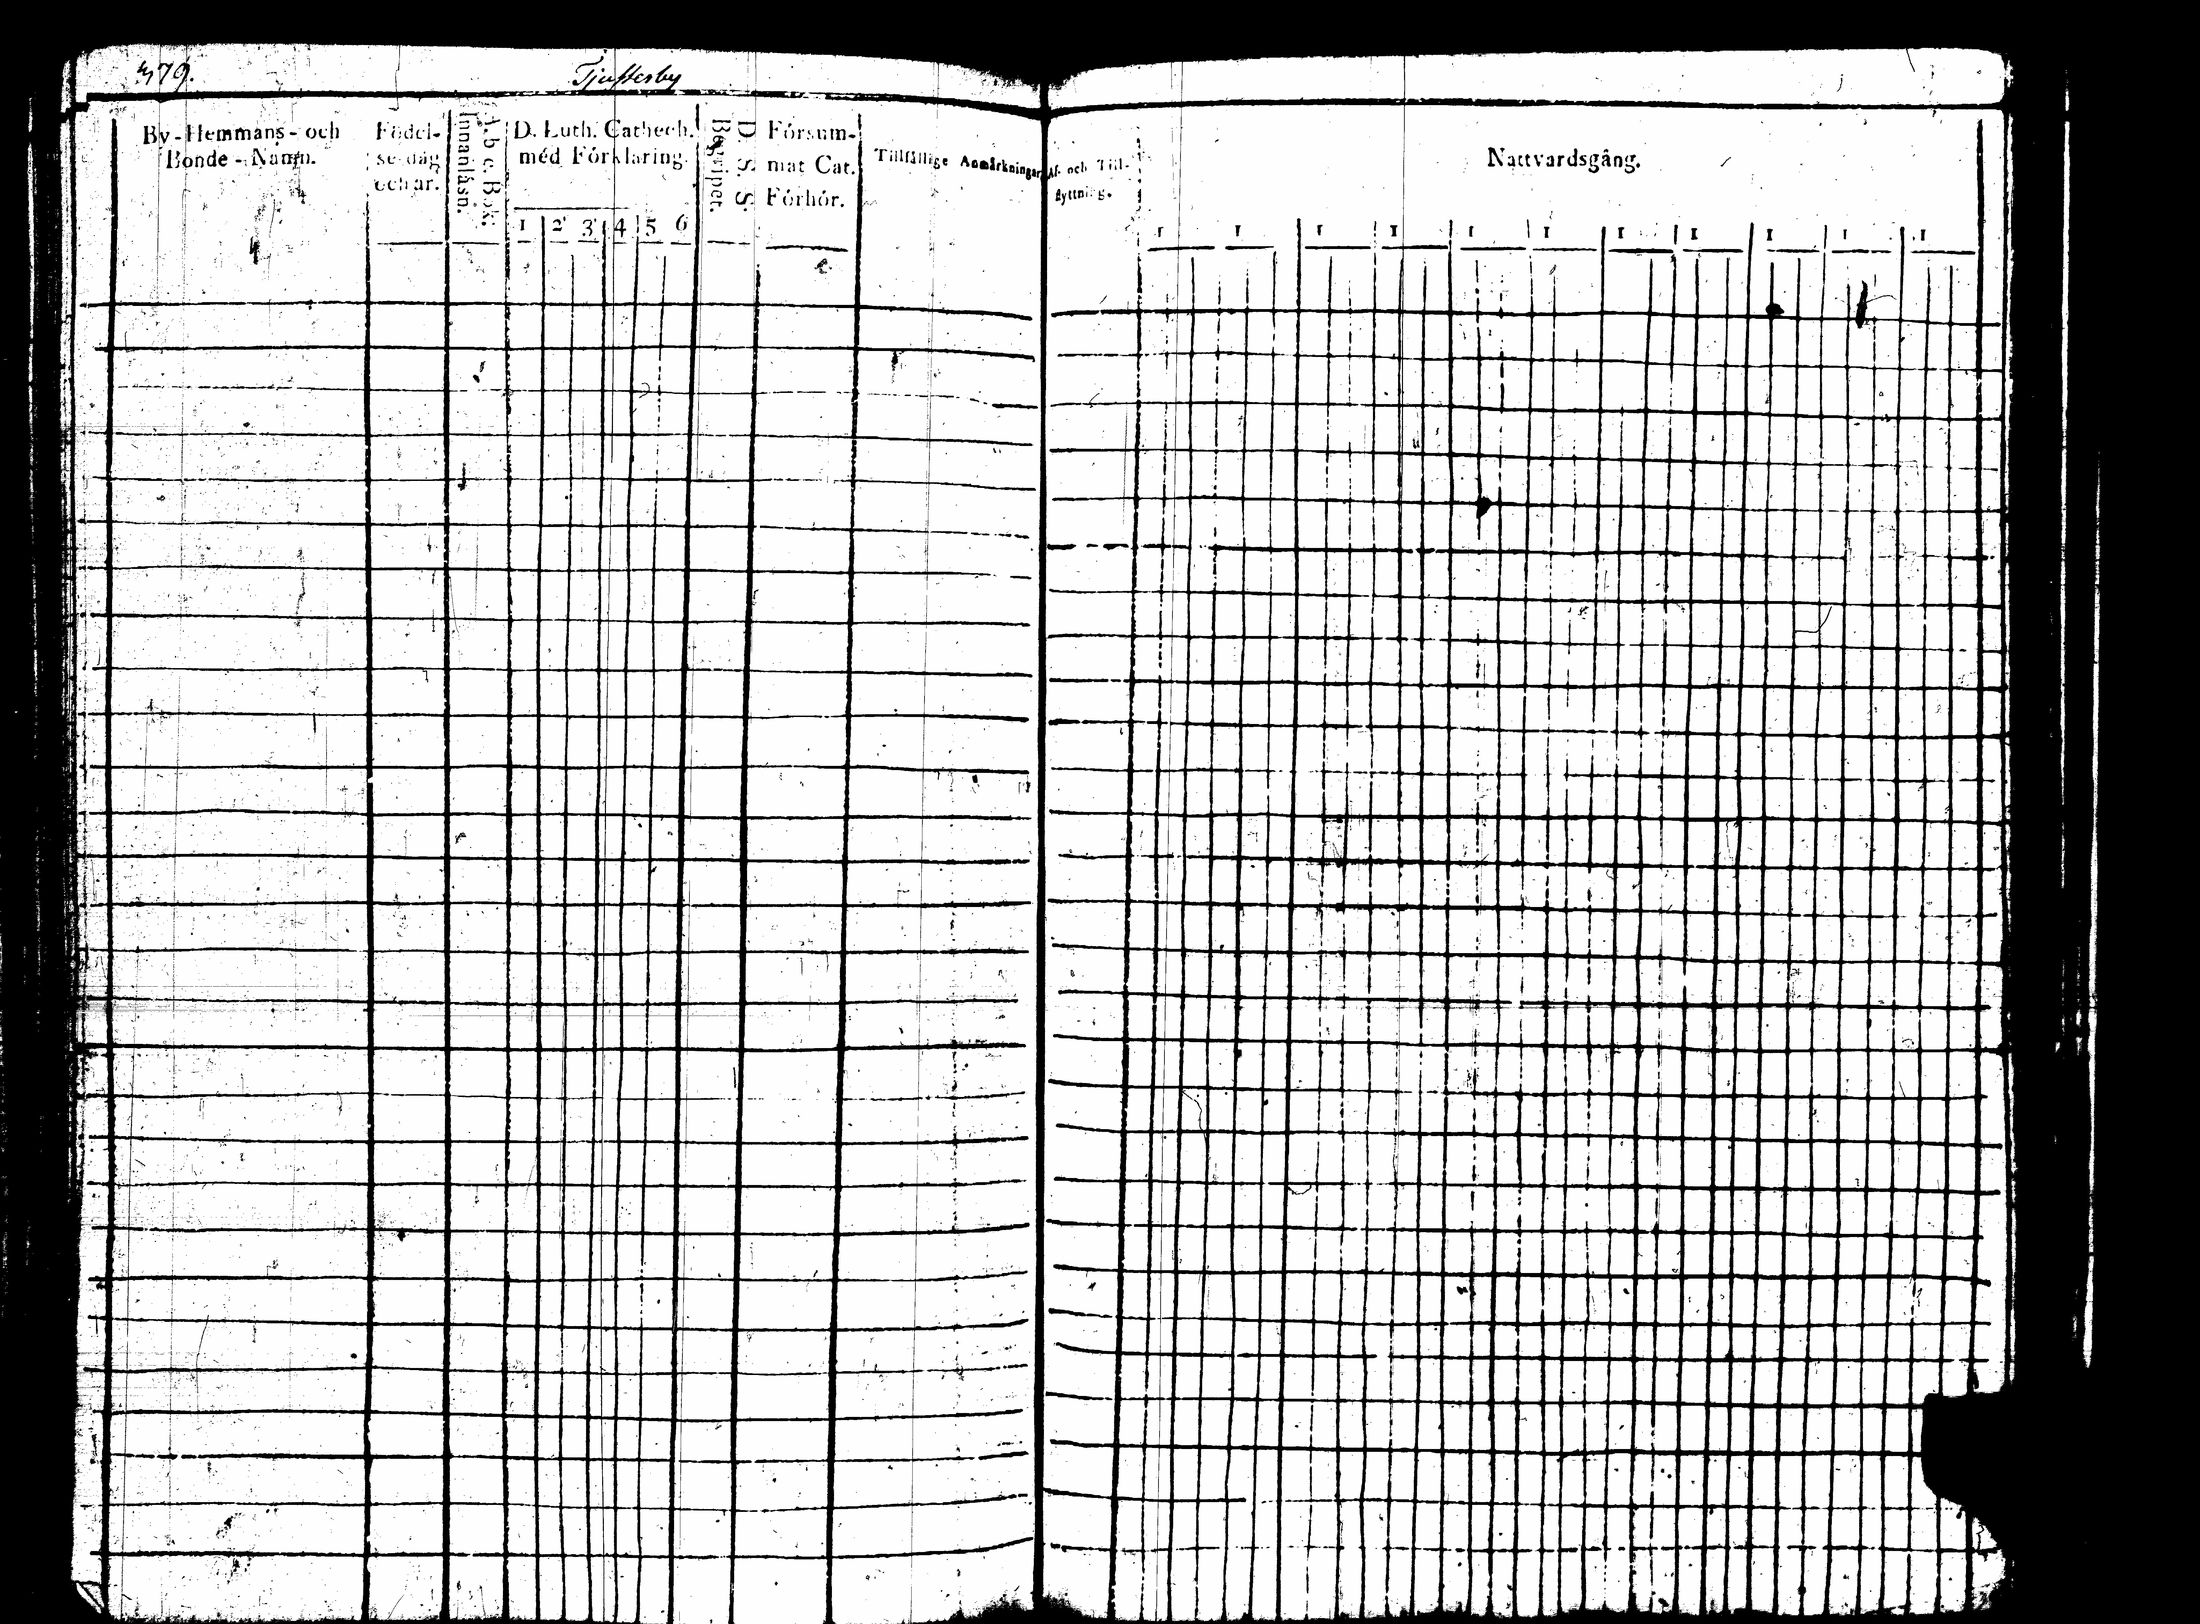 379.
Tjusterby
By-Hemmans- och
Bonde-Namn.
Födel-
sedag
och år.
Innanläsn.
A. b. c. Bok.
D. Luth. Cathech.
med Förklaring.
1 2 3 4 5 6
Begripet.
D. S. S.
Försum-
mat Cat.
Förhör.
Tillfällige Anmärkningar
Af- och Till-
flyttning.
Nattvardsgång.
1 1 1 1 1 1 1 1 1 1 1